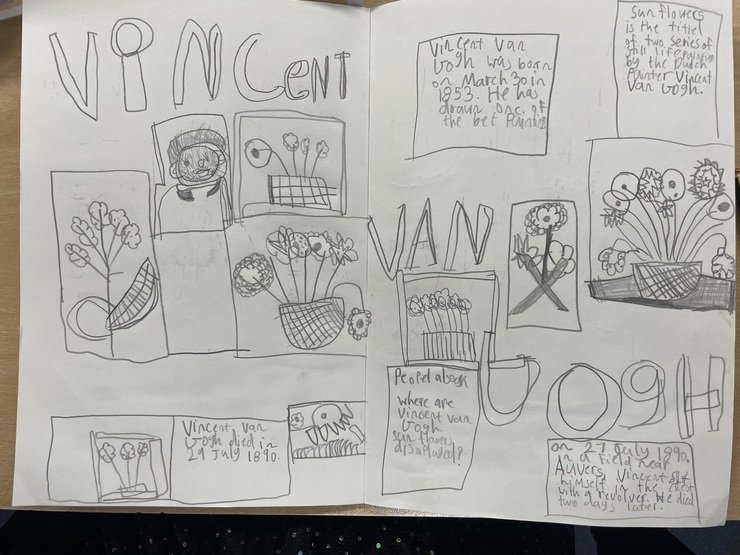 VINCENT
Vincent Van
Gogh died in
29 July 1890.
Vincent Van
Gogh was born
on March 30 in
1853. He has
drawn one of
the bet Painting
Sunflowers
is the titel
of two series of
still life painting
by the Dutch
Painter Vincent
Van Gogh.
VAN
GOGH
Where are
Vincent Van
Gogh
Sun flowers
on 27 July 1890,
in a field near
Auvers, Vincent
himself in the chest
with a revolver. He died
two days later.